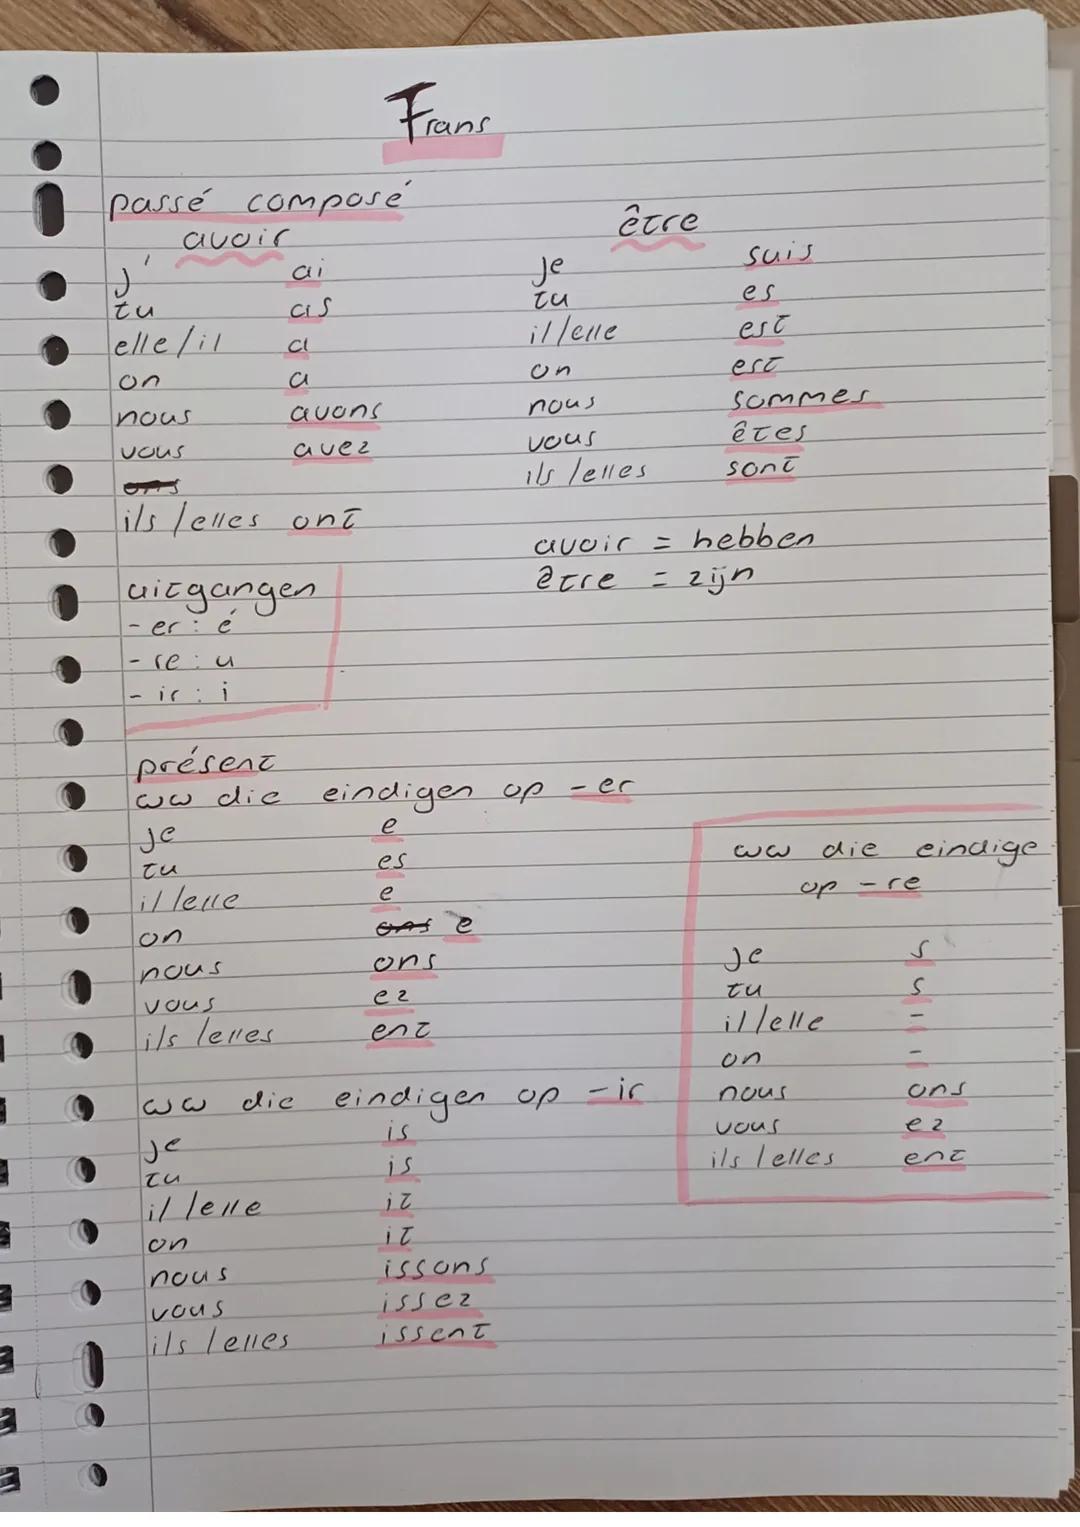 Frans
passé composé
avoir
j' ai
tu as
elle/il a
on a
nous avons
vous avez
ons
ils/elles ont
être
je suis
tu es
il/elle est
on est
nous sommes
vous êtes
ils/elles sont
avoir = hebben
être = zijn
uitgangen
- er : é
- re : u
- ir : i
présent
ww die eindigen op -er
je e
tu es
il/elle e
on ons e
nous ons
vous ez
ils/elles ent
ww die eindigen op -ir
je is
tu is
il/elle it
on it
nous issons
vous issez
ils/elles issent
ww die eindige
op -re
je s
tu s
il/elle -
on -
nous ons
vous ez
ils/elles ent